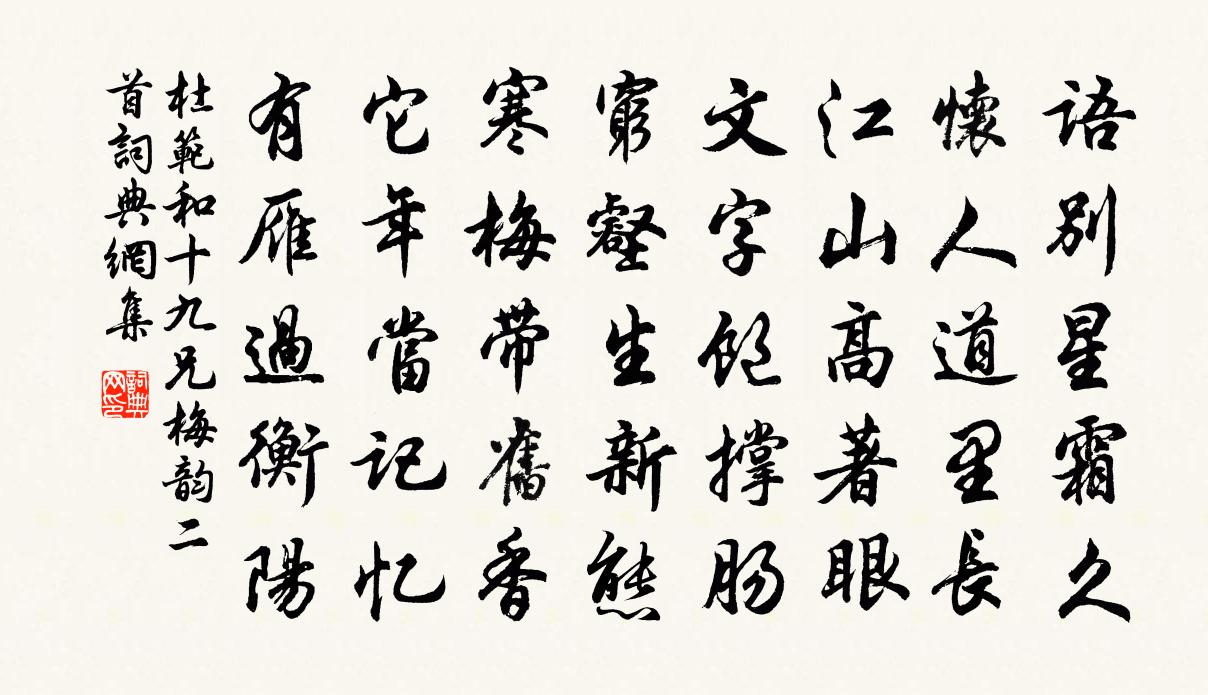 語別星霜久
懷人道里長
江山高著眼
文字飽撐腸
窮壑生新態
寒梅帶舊香
它年當記忆
有雁過衡陽
杜範和十九兄梅韵二
首詞典網集
詞典网印